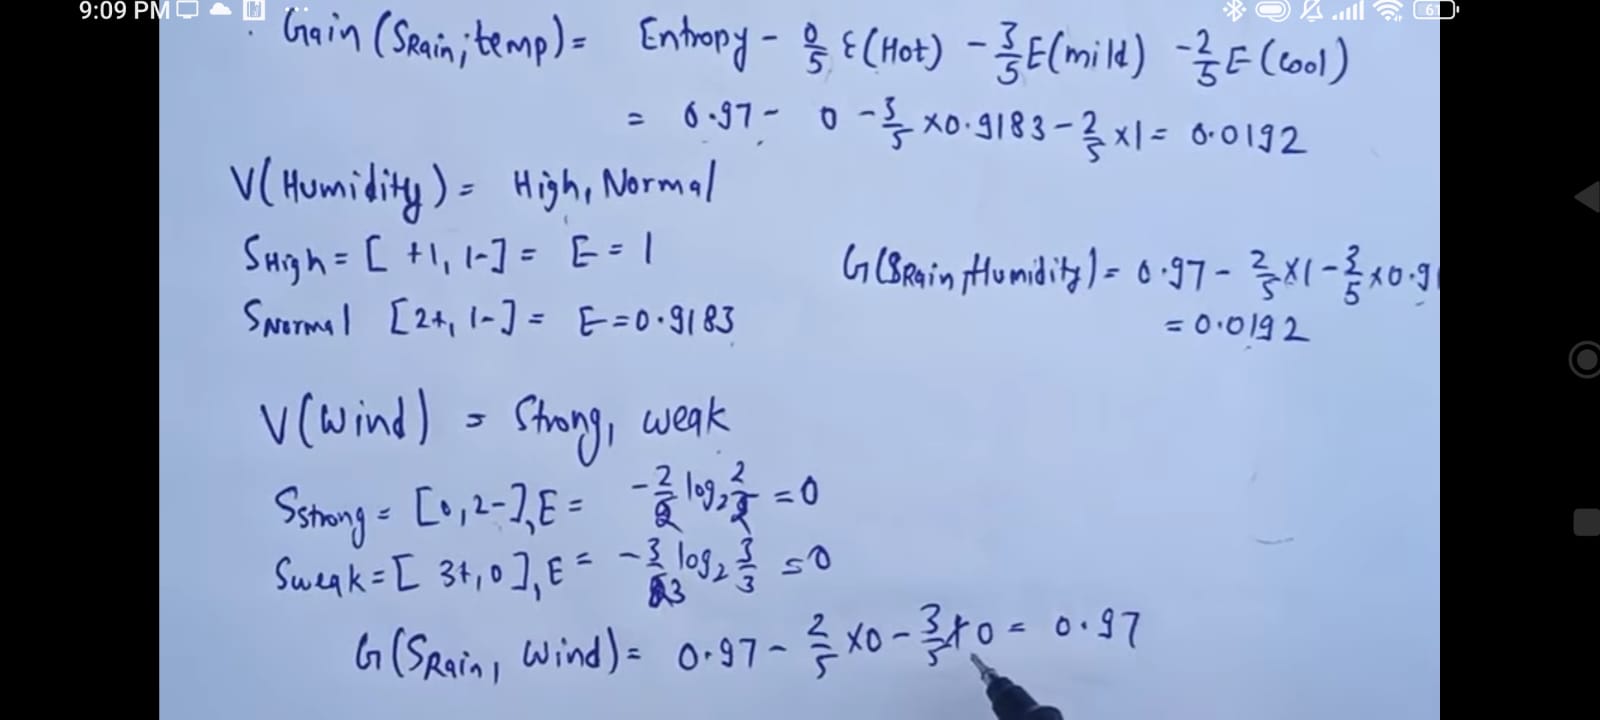 9:09 PM
61
Gain (SRain, temp) = Entropy - 0/5 E(Hot) - 3/5 E(mild) - 2/5 E(cool)
= 0.97 - 0 - 3/5 × 0.9183 - 2/5 × 1 = 0.0192
V(Humidity) = High, Normal
SHigh = [ +1, 1-] = E = 1
G(SRain, Humidity) = 0.97 - 2/5 × 1 - 3/5 × 0.9
SNormal [2+, 1-] = E = 0.9183
= 0.0192
V(Wind) = Strong, weak
Sstrong = [0, 2-], E = - 2/2 log2 2/2 = 0
Sweak = [ 3+, 0 ], E = - 3/3 log2 3/3 = 0
G(SRain, Wind) = 0.97 - 2/5 × 0 - 3/5 × 0 = 0.97